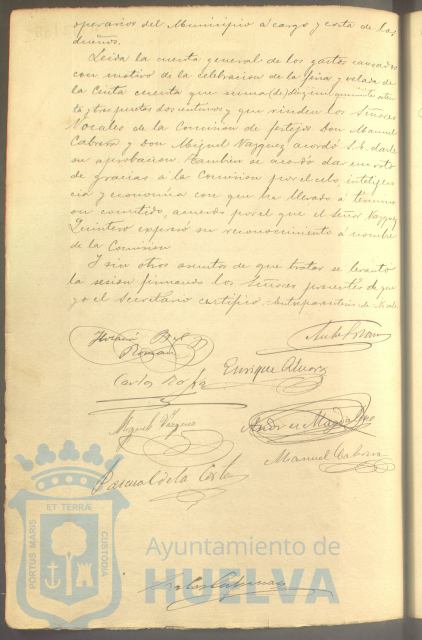 operarios del Municipio á cargo y costa de los
dueños.
Leida la cuenta general de los gastos causados
con motivo de la celebracion de la feria y velada de
la Cinta cuenta que suma
y tres pesetas dos centimos y que rinden los Señores
Vocales de la Comision de festejos Don Manuel
Cabrera y Don Miguel Vazquez acordó S.E. darle
su aprobacion. Tambien se acordó dar un voto
de gracias á la Comision por el celo, inteligen
cia y economia con que ha llevado á termino
su cometido, acuerdo por el que el Señor Vazquez
Quintero expresó su reconocimiento á nombre
de la Comision
Y sin otros asuntos de que tratar se levantó
la sesion firmando los Señores presentes de que
yo el Secretario certifico.
Roman
Carlos
Enrique
Miguel Vazquez
Manuel Cabrera
Pascual de la Corte
PORTUS MARIS ET TERRÆ CUSTODIA
Ayuntamiento de
HUELVA